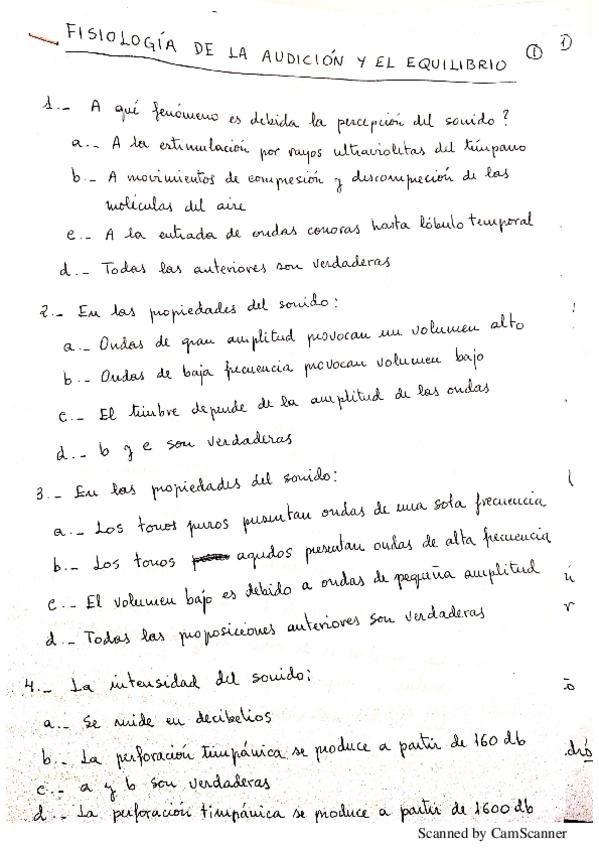 FISIOLOGÍA DE LA AUDICIÓN Y EL EQUILIBRIO ① 1)
1.- A qué fenómeno es debida la percepción del sonido?
a.- A la estimulación por rayos ultravioletas del tímpano
b.- A movimientos de compresión y descompreción de las
moléculas del aire
c.- A la entrada de ondas conoras hasta lóbulo temporal
d.- Todas las anteriores son verdaderas
2.- En las propiedades del sonido:
a.- Ondas de gran amplitud provocan un volumen alto
b.- Ondas de baja frecuencia provocan volumen bajo
c.- El timbre depende de la amplitud de las ondas
d.- b y c son verdaderas
3.- En las propiedades del sonido:
a.- Los tonos puros presentan ondas de una sola frecuencia
b.- Los tonos agudos presentan ondas de alta frecuencia
c.- El volumen bajo es debido a ondas de pequeña amplitud
d.- Todas las proposiciones anteriores son verdaderas
4.- La intensidad del sonido:
a.- Se mide en decibelios
b.- La perforación timpánica se produce a partir de 160 db
c.- a y b son verdaderas
d.- La perforación timpánica se produce a partir de 1600 db
Scanned by CamScanner